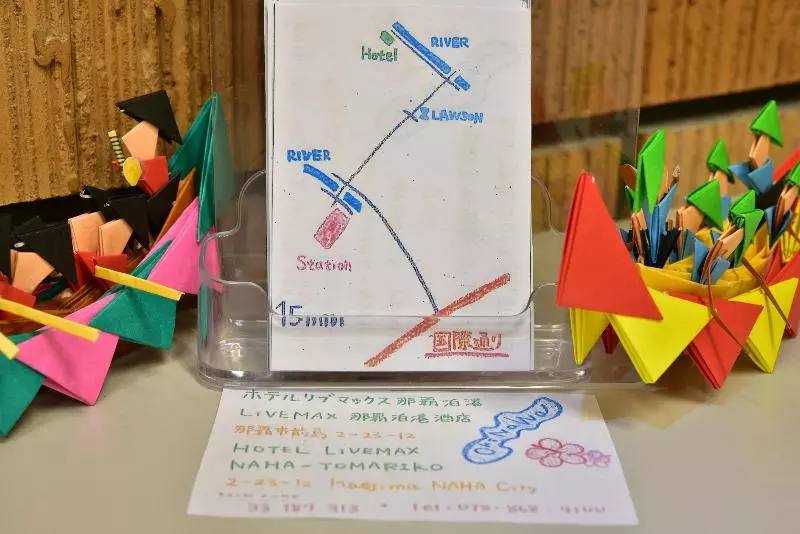 RIVER
Hotel
LAWSON
RIVER
Station
15min
国際通り
ホテルリブマックス那覇泊港
LiVEMAX 那覇泊港酒店
那覇市前島 2-23-12
OKINAWA
HOTEL LiVEMAX
NAHA-TOMARIKO
2-23-12 Maejima NAHA City
33 187 313 * Tel.